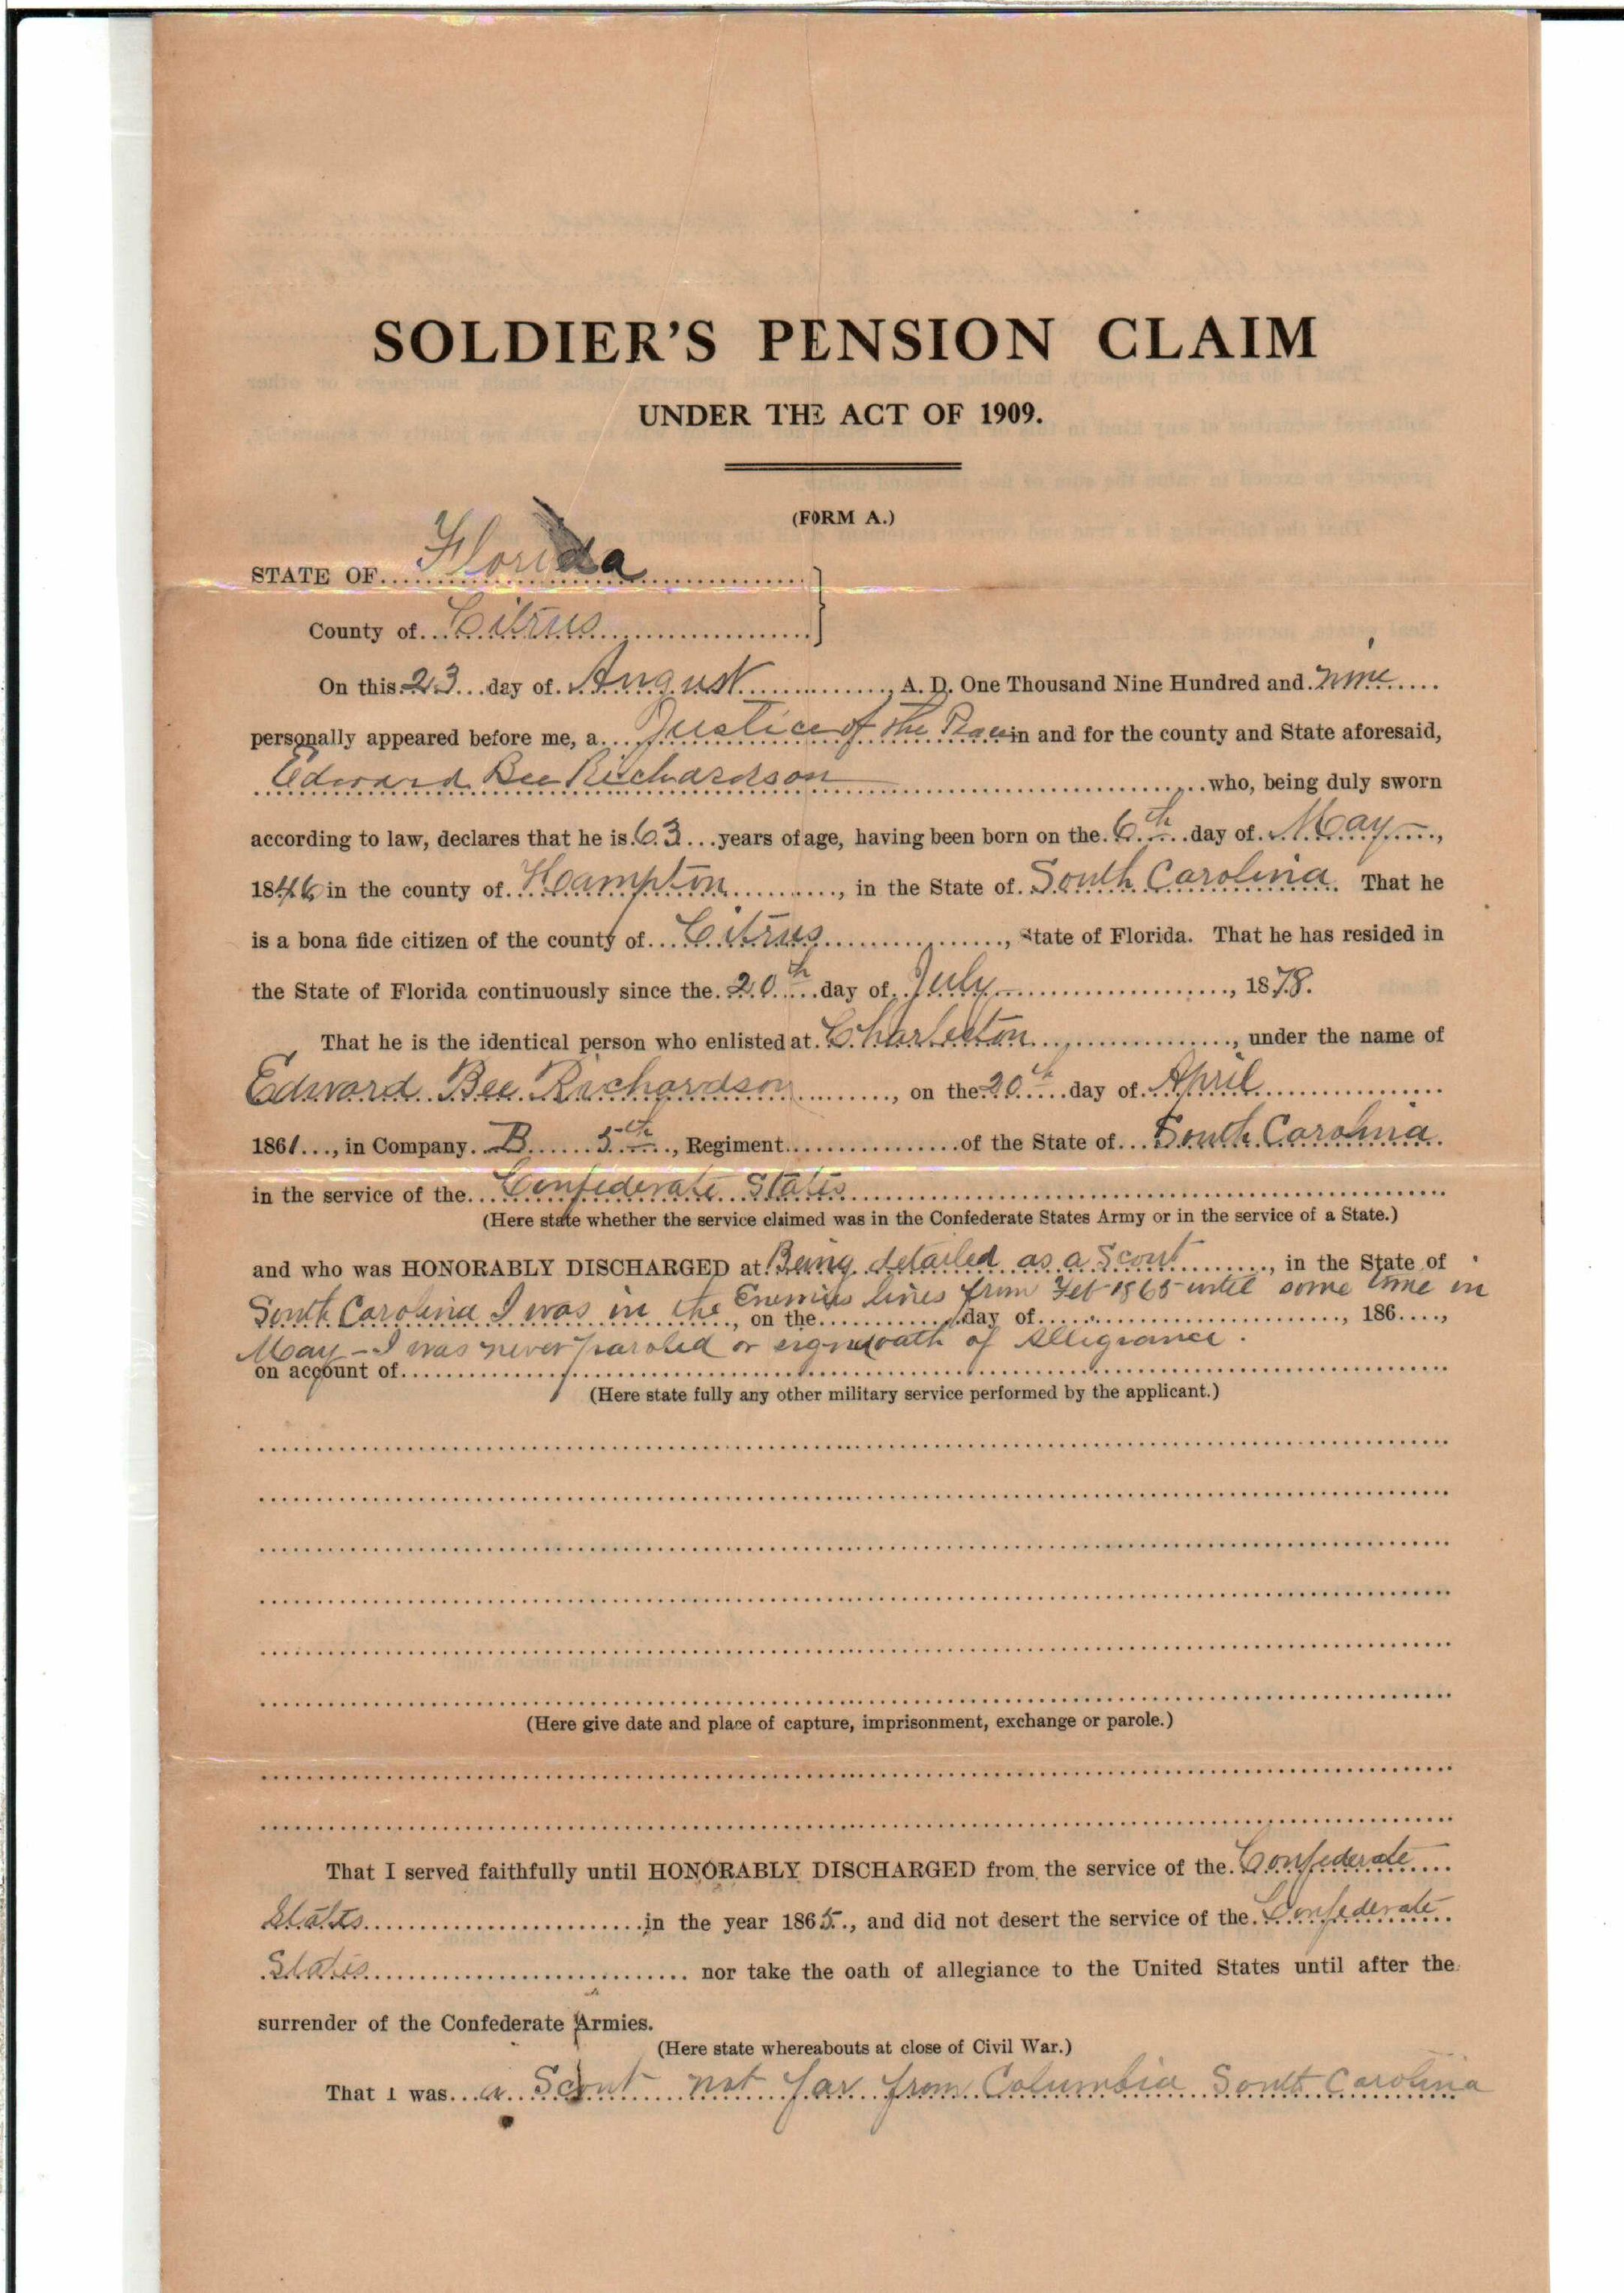 SOLDIER'S PENSION CLAIM
UNDER THE ACT OF 1909.
(FORM A.)
STATE OF Florida
County of Citrus
On this 23 day of August, A. D. One Thousand Nine Hundred and nine
personally appeared before me, a Justice of the Peace in and for the county and State aforesaid,
Edward Bee Richardson who, being duly sworn
according to law, declares that he is 63 years of age, having been born on the 6th day of May,
1846 in the county of Hampton, in the State of South Carolina. That he
is a bona fide citizen of the county of Citrus, State of Florida. That he has resided in
the State of Florida continuously since the 20th day of July, 1878.
That he is the identical person who enlisted at Charleston, under the name of
Edward Bee Richardson, on the 20th day of April
1861, in Company B 5th, Regiment of the State of South Carolina
in the service of the Confederate States
(Here state whether the service claimed was in the Confederate States Army or in the service of a State.)
and who was HONORABLY DISCHARGED at Being detailed as a Scout, in the State of
South Carolina I was in the Enemies lines from Feb 1865 until some time in
, on the day of , 186 ,
May - I was never paroled or signed oath of Allegiance.
on account of
(Here state fully any other military service performed by the applicant.)
(Here give date and place of capture, imprisonment, exchange or parole.)
That I served faithfully until HONORABLY DISCHARGED from the service of the Confederate
States in the year 1865, and did not desert the service of the Confederate
States nor take the oath of allegiance to the United States until after the
surrender of the Confederate Armies.
(Here state whereabouts at close of Civil War.)
That I was a Scout not far from Columbia South Carolina